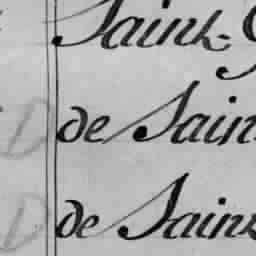 Saint-
D de Sain
D de Saint